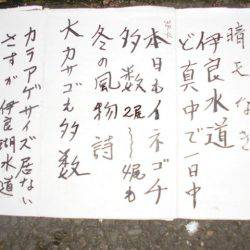 暗をなき
伊良水道
ど真中で1日中
本日もイネゴチ
多数尾〜娓も
冬の風物詩
大カサゴも多数
カラアゲサイズ居ない
さすが伊良湖水道